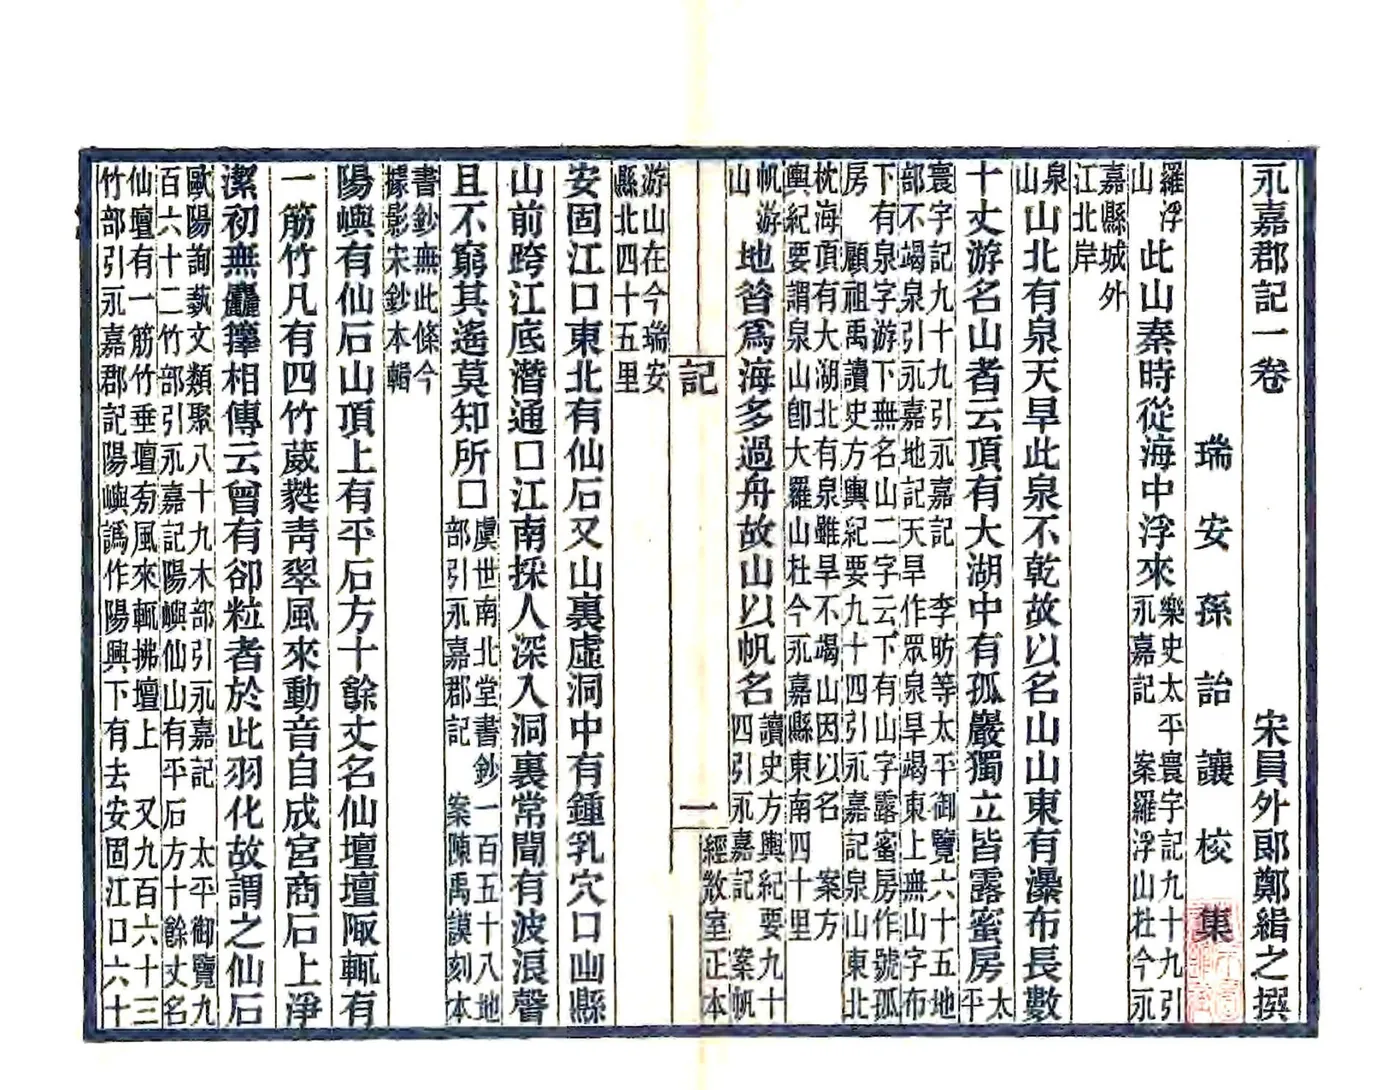 永嘉郡記一卷 宋員外郎鄭緝之撰
瑞安孫詒讓校集
羅浮
山
此山秦時從海中浮來
樂史太平寰宇記九十九引
永嘉記 案羅浮山杜今永
嘉縣城外
江北岸
泉
山
山北有泉天旱此泉不乾故以名山山東有瀑布長數
十丈游名山者云頂有大湖中有孤巖獨立皆露蜜房
太
平
寰宇記九十九引永嘉記 李昉等太平御覽六十五地
部不竭泉引永嘉地記天旱作眾泉旱竭東上無山字布
下有泉字游下無名山二字云下有山字露蜜房作號孤
房 顧祖禹讀史方輿紀要九十四引永嘉記泉山東北
枕海頂有大湖北有泉雖旱不竭山因以名 案方
輿紀要謂泉山卽大羅山杜今永嘉縣東南四十里
帆游
山
地昔爲海多過舟故山以帆名
讀史方輿紀要九十
四引永嘉記 案帆
記 一
經敚室正本
游山在今瑞安
縣北四十五里
安固江口東北有仙石又山裏虛洞中有鍾乳穴口凷縣
山前跨江底潛通口江南採人深入洞裏常聞有波浪聲
且不窮其遙莫知所口
虞世南北堂書鈔一百五十八地
部引永嘉郡記 案陳禹謨刻本
書鈔無此條今
據影宋鈔本輯
陽嶼有仙石山頂上有平石方十餘丈名仙壇壇陬輒有
一筋竹凡有四竹葳蕤青翠風來動音自成宮商石上淨
潔初無麤籜相傳云曾有卻粒者於此羽化故謂之仙石
歐陽詢蓺文類聚八十九木部引永嘉記 太平御覽九
百六十二竹部引永嘉記陽嶼仙山有平石方十餘丈名
仙壇有一筋竹垂壇旁風來輒拂壇上 又九百六十三
竹部引永嘉郡記陽嶼譌作陽興下有去安固江口六十